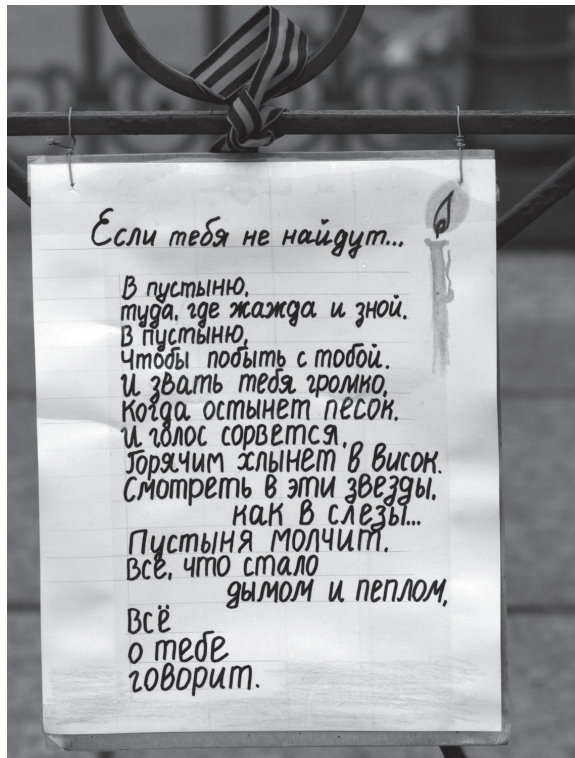 Если тебя не найдут...
В пустыню,
туда, где жажда и зной.
В пустыню,
Чтобы побыть с тобой.
И звать тебя громко,
Когда остынет песок.
И голос сорвется,
Горячим хлынет в висок.
Смотреть в эти звезды,
как в слезы...
Пустыня молчит.
Все, что стало
дымом и пеплом,
Всё
о тебе
говорит.